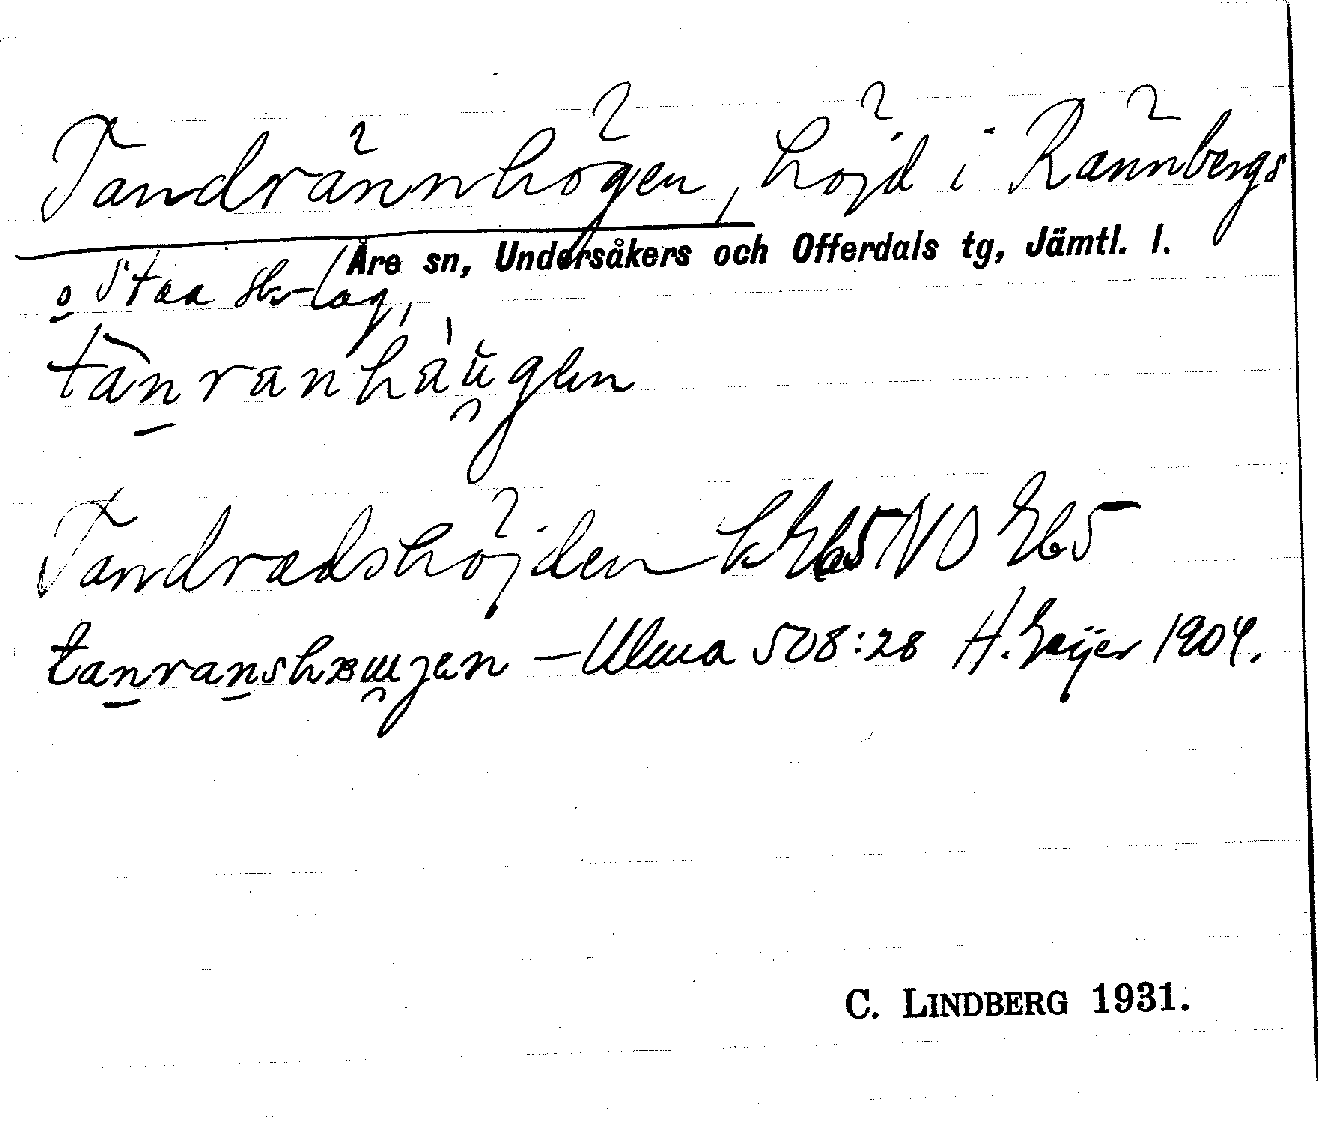 Tandrännhögen, höjd i Rännbergs
Åre sn, Undersåkers och Offerdals tg, Jämtl. l.
o Staa sk-lag,
tanranhàu̯gen
Tandradshöjden k NO Gk5
tanranshæu̯gen – Ulma 508:28 H. Geijer 1904.
C. LINDBERG 1931.